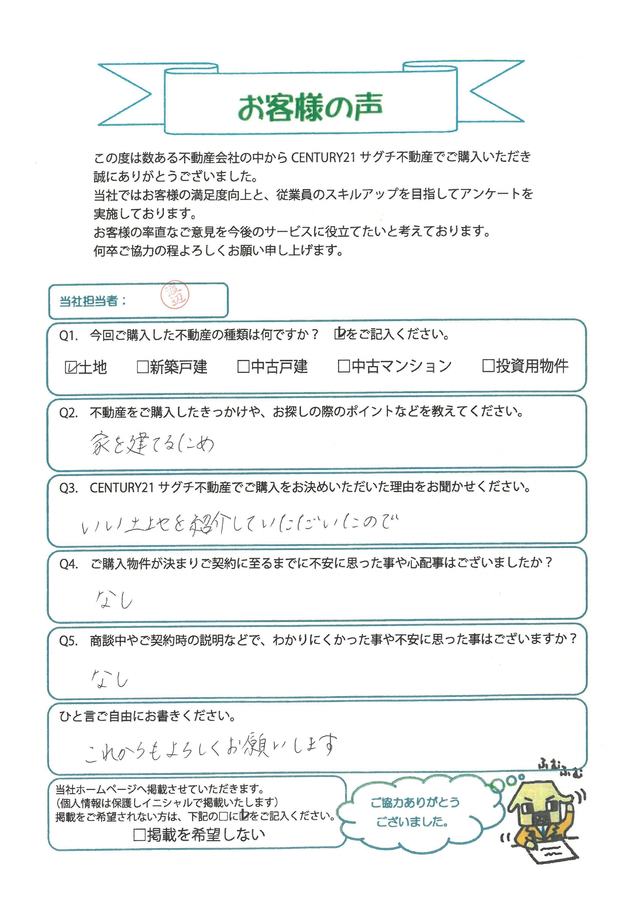 お客様の声
この度は数ある不動産会社の中から CENTURY21 サグチ不動産でご購入いただき
誠にありがとうございました。
当社ではお客様の満足度向上と、従業員のスキルアップを目指してアンケートを
実施しております。
お客様の率直なご意見を今後のサービスに役立てたいと考えております。
何卒ご協力の程よろしくお願い申し上げます。
当社担当者：
Q1. 今回ご購入した不動産の種類は何ですか？ ☑をご記入ください。
☑土地 □新築戸建 □中古戸建 □中古マンション □投資用物件
Q2. 不動産をご購入したきっかけや、お探しの際のポイントなどを教えてください。
家を建てるため
Q3. CENTURY21 サグチ不動産でご購入をお決めいただいた理由をお聞かせください。
いい土地を紹介していただいたので
Q4. ご購入物件が決まりご契約に至るまでに不安に思った事や心配事はございましたか？
なし
Q5. 商談中やご契約時の説明などで、わかりにくかった事や不安に思った事はございますか？
なし
ひと言ご自由にお書きください。
これからもよろしくお願いします
当社ホームページへ掲載させていただきます。
（個人情報は保護しイニシャルで掲載いたします）
掲載をご希望されない方は、下記の□に☑をご記入ください。
□掲載を希望しない
ご協力ありがとう
ございました。
ふむ
ふむ